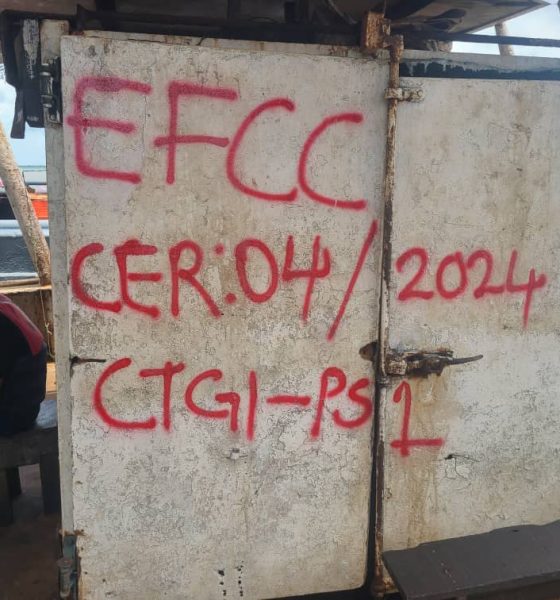 EFCC
CER:04/2024
CTGI-PS1